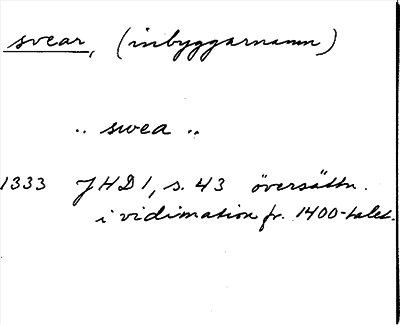 svear, (inbyggarnamn)
.. swea ..
1333 JHD 1, s. 43 översättn.
i vidimation fr. 1400-talet.